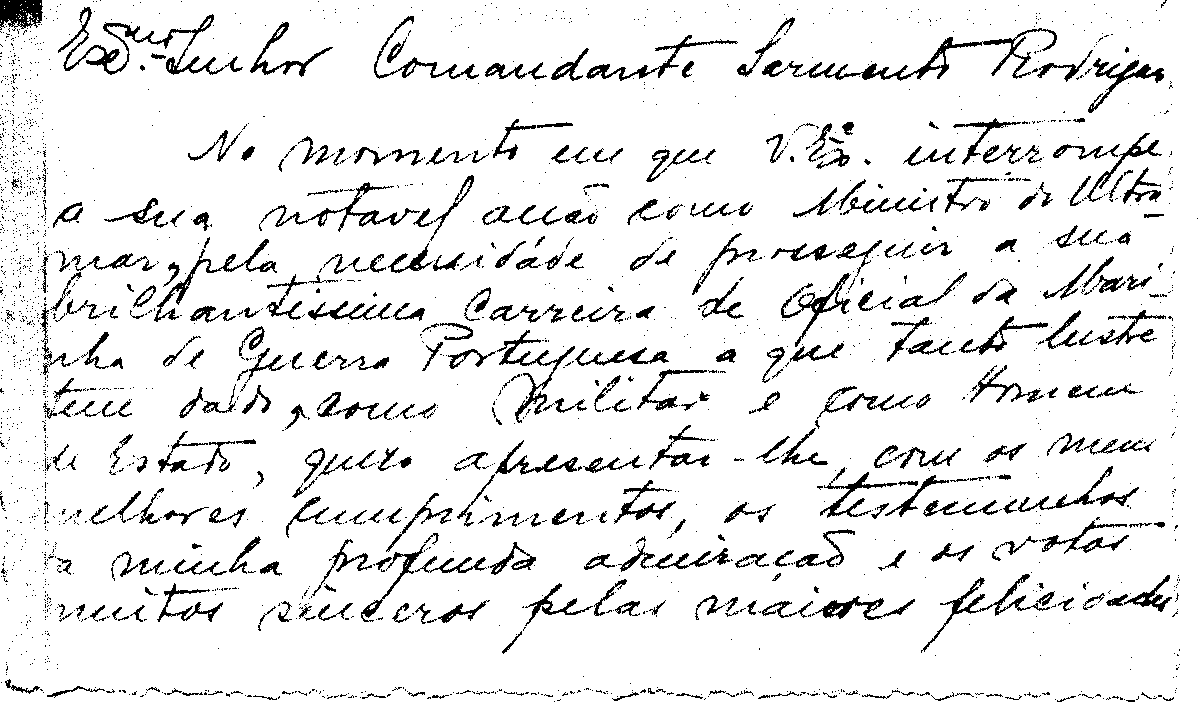 Exmo. Senhor Comandante Sarmento Rodrigues
No momento em que V. Exª. interrompe
a sua notavel acção como Ministro do Ultra-
mar, pela necessidade de prosseguir a sua
brilhantissima carreira de Oficial da Mari-
nha de Guerra Portuguesa a que tanto lustre
tem dado, como Militar e como Homem
de Estado, quero apresentar-lhe, com os meus
melhores cumprimentos, os testemunhos
da minha profunda admiração e os votos
muitos sinceros pelas maiores felicidades